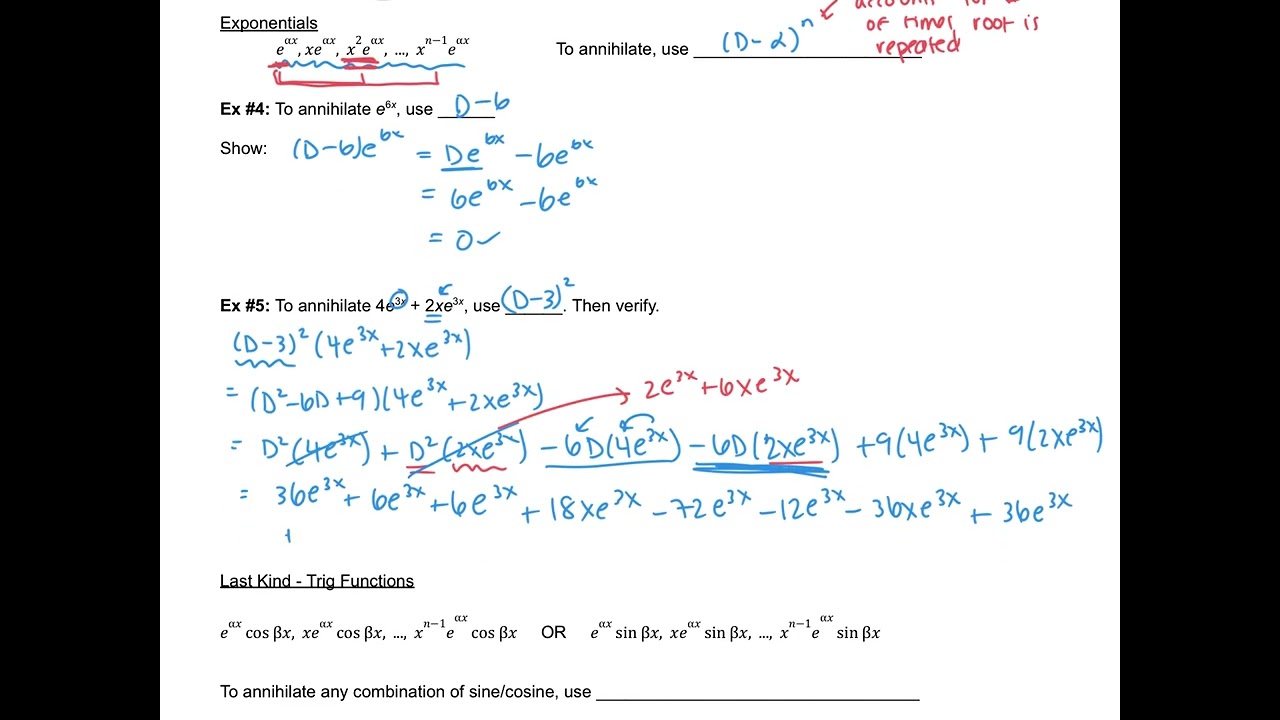 Exponentials
of times root is
e^αx, xe^αx, x^2 e^αx, ..., x^n−1 e^αx To annihilate, use (D-α)^n repeated
Ex #4: To annihilate e^6x, use D-6
Show: (D-6)e^6x = De^6x - 6e^6x
= 6e^6x - 6e^6x
= 0 ✓
Ex #5: To annihilate 4e^3x + 2xe^3x, use (D-3)^2. Then verify.
(D-3)^2 (4e^3x + 2xe^3x)
= (D^2-6D+9)(4e^3x + 2xe^3x) → 2e^3x + 6xe^3x
= D^2(4e^3x) + D^2(2xe^3x) - 6D(4e^3x) - 6D(2xe^3x) + 9(4e^3x) + 9(2xe^3x)
= 36e^3x + 6e^3x + 6e^3x + 18xe^3x - 72e^3x - 12e^3x - 36xe^3x + 36e^3x
+
Last Kind - Trig Functions
e^αx cos βx, xe^αx cos βx, ..., x^n−1 e^αx cos βx OR e^αx sin βx, xe^αx sin βx, ..., x^n−1 e^αx sin βx
To annihilate any combination of sine/cosine, use